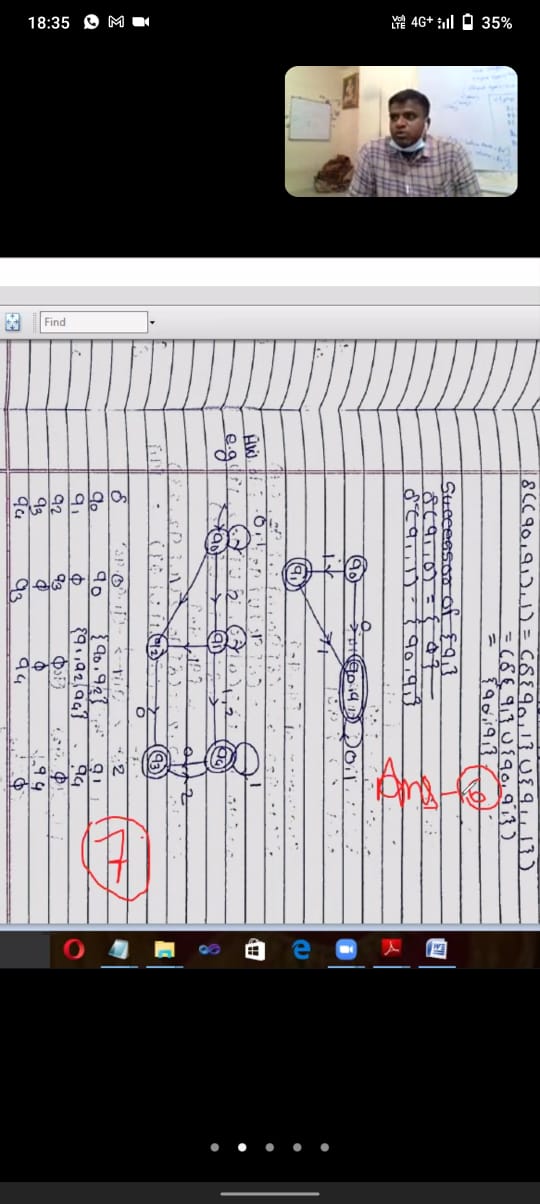 18:35
VoI) LTE 4G+ 35%
Find
δ({q0,q1},1) = (δ{q0,1} ∪ {q1,1})
= ({q1} ∪ {q0,q1})
= {q0,q1}
Successor of {q1}
δ(q1,0) = {ϕ}
δ(q1,1) = {q0,q1}
Ans - 6
q0 0 q0,q1 0,1
1 1
q1
HW
e.g
0,1 1 1
q0 2 q1 1,2 q4
1 0 2
q2 0 q3
δ 0 1 2
q0 q0 {q0,q2} q1
q1 ϕ {q1,q2,q4} q4
q2 q3 ϕ ϕ
q3 ϕ ϕ q4
q4 q3 q4 ϕ
7